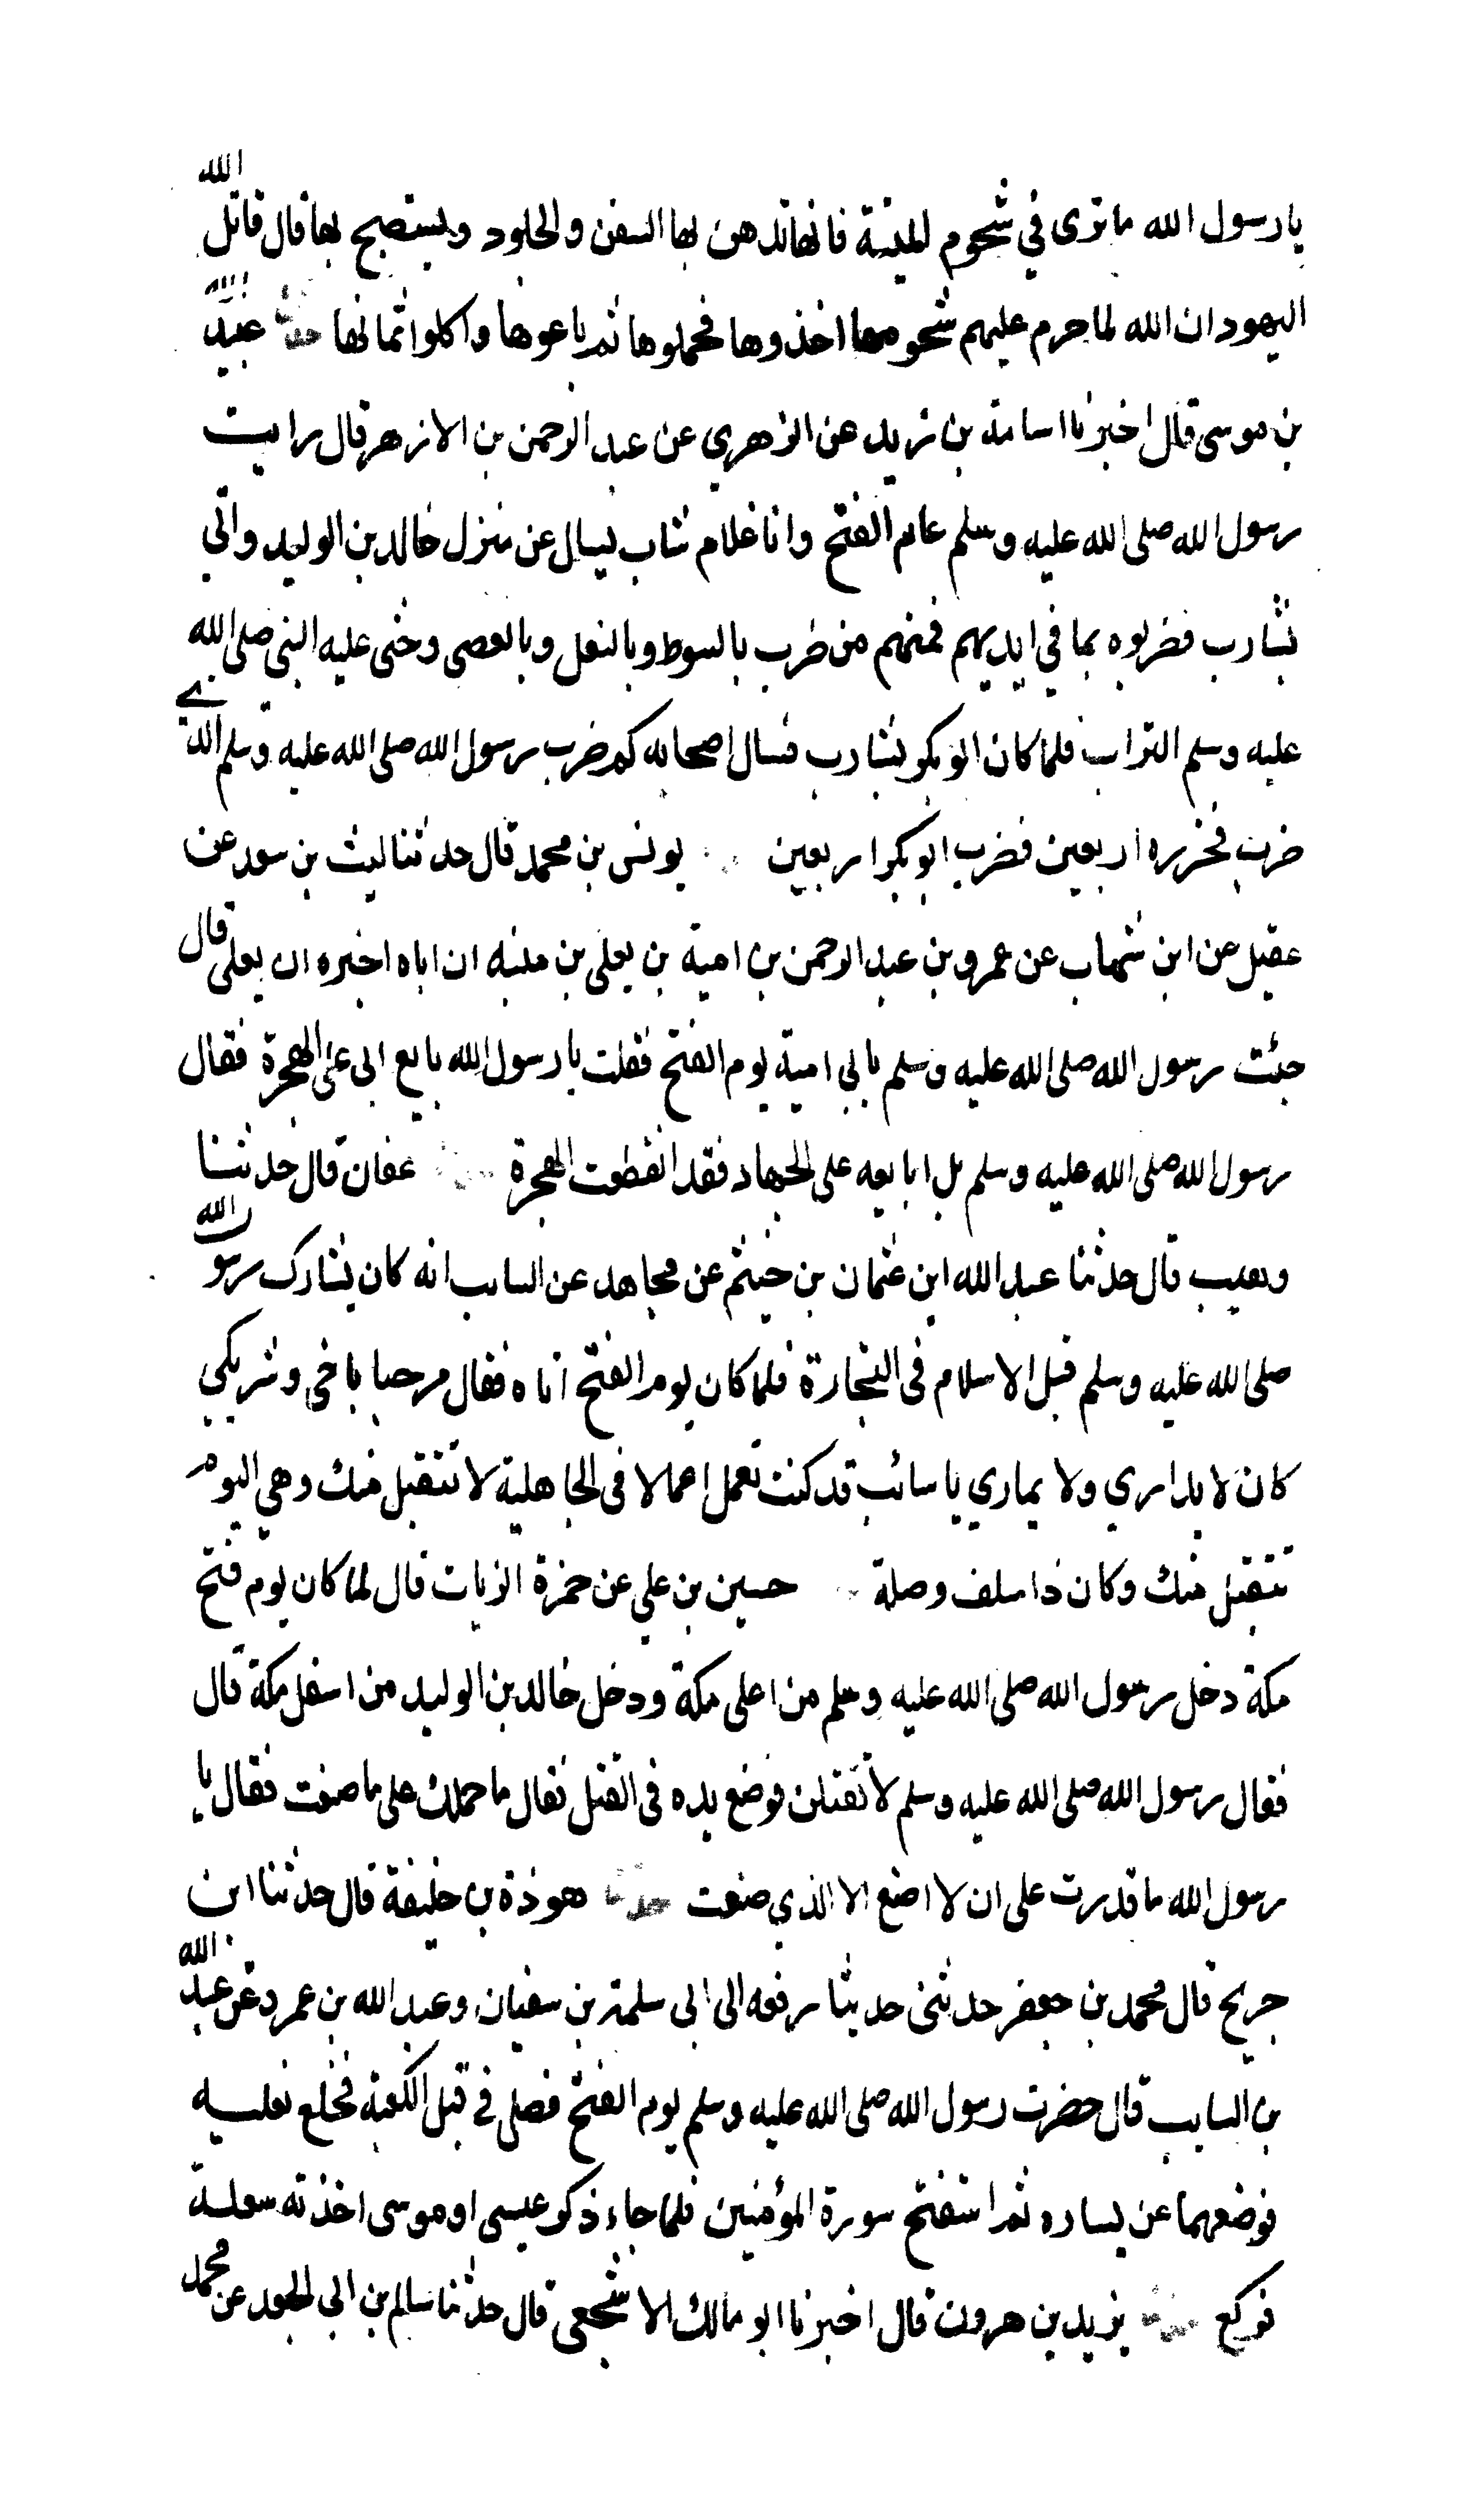 يا رسول الله ما ترى في شحوم الميتة فانها تدهن بها السفن والجلود ويستصبح بها قال قاتل الله
اليهود ان الله لما حرم عليهم شحومها اخذوها فجملوها ثم باعوها واكلوا اثمانها حدثنا عبيد الله
بن موسى قال اخبرنا اسامة بن زيد عن الزهري عن عبد الرحمن بن الازهر قال رايت
رسول الله صلى الله عليه وسلم عام الفتح وانا غلام شاب يسال عن منزل خالد بن الوليد واتي
بشارب فضربوه بما في ايديهم فمنهم من ضرب بالسوط وبالنعل وبالعصى وحثى عليه النبي صلى الله
عليه وسلم التراب فلما كان ابو بكر بشارب فسال اصحابه كم ضرب رسول الله صلى الله عليه وسلم الذي
ضرب فحزره اربعين فضرب ابو بكر اربعين يونس بن محمد قال حدثنا ليث بن سعد عن
عقيل عن ابن شهاب عن عمرو بن عبد الرحمن بن امية بن يعلى بن منبه ان اباه اخبره ان يعلى قال
جئت رسول الله صلى الله عليه وسلم بابي امية يوم الفتح فقلت يا رسول الله بايع ابى على الهجرة فقال
رسول الله صلى الله عليه وسلم بل ابايعه على الجهاد فقد انقطعت الهجرة عفان قال حدثنا
وهيب قال حدثنا عبد الله ابن عثمان بن خيثم عن مجاهد عن السايب انه كان يشارك رسول الله
صلى الله عليه وسلم قبل الاسلام فى التجارة فلما كان يوم الفتح اتاه فقال مرحبا باخي وشريكي
كان لا يداري ولا يماري يا سائب قد كنت تعمل اعمالا فى الجاهلية لا تتقبل منك وهي اليوم
تتقبل منك وكان ذا سلف وصلة حسين بن علي عن حمزة الزيات قال لما كان يوم فتح
مكة دخل رسول الله صلى الله عليه وسلم من اعلى مكة ودخل خالد بن الوليد من اسفل مكة قال
فقال رسول الله صلى الله عليه وسلم لا تقتلن فوضع يده فى القتل فقال ما حملك على ما صنعت فقال يا
رسول الله ما قدرت على ان لا اصنع الا الذي صنعت حدثنا هوذة بن خليفة قال حدثنا ابن
جريج قال محمد بن جعفر حدثني حديثا رفعه الى ابى سلمة بن سفيان وعبد الله بن عمرو عن عبد الله
بن السايب قال حضرت رسول الله صلى الله عليه وسلم يوم الفتح فصلى في قبل الكعبة فخلع نعليه
فوضعهما عن يساره ثم استفتح سورة المؤمنين فلما جاء ذكر عيسى او موسى اخذته سعلة
فركع يزيد بن هرون قال اخبرنا ابو مالك الاشجعي قال حدثنا سالم بن ابي الجعد عن محمد